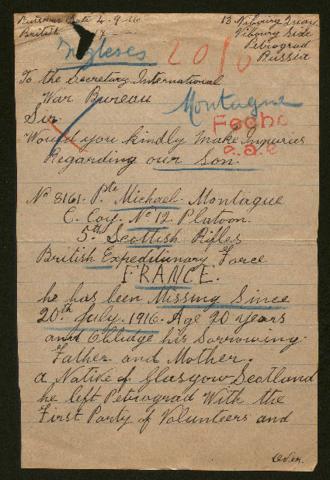 Russian Date 4-9-16
British
13 Nevsing Quay
Viborg Side
Petrograd
Russia
Ingleses
2010
To the Secretary International
War Bureau
Montague
Sir
Fecho
e.a.e
Would you kindly make Inquiries
Regarding our son.
No 8161. Pte Michael Montague
C. Coy. No 12 Platoon.
5th Scottish Rifles
British Expeditionary Force
FRANCE.
he has been Missing Since
20th July. 1916. Age 20 years
and Obledge his Sorrowing
Father and Mother.
a Native of Glasgow Scotland
he left Petrograd With the
First Party of Volunteers and
Over.